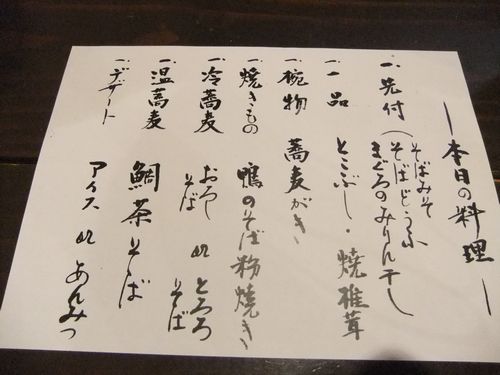 本日の料理
一、先付
そばみそ
そばどうふ
まぐろのみりん干し
一、一品
とこぶし・焼椎茸
一、椀物
蕎麦がき
一、焼きもの
鴨のそば粉焼き
一、冷蕎麦
おろしそば or とろろそば
一、温蕎麦
鯛茶そば
一、デザート
アイス or あんみつ